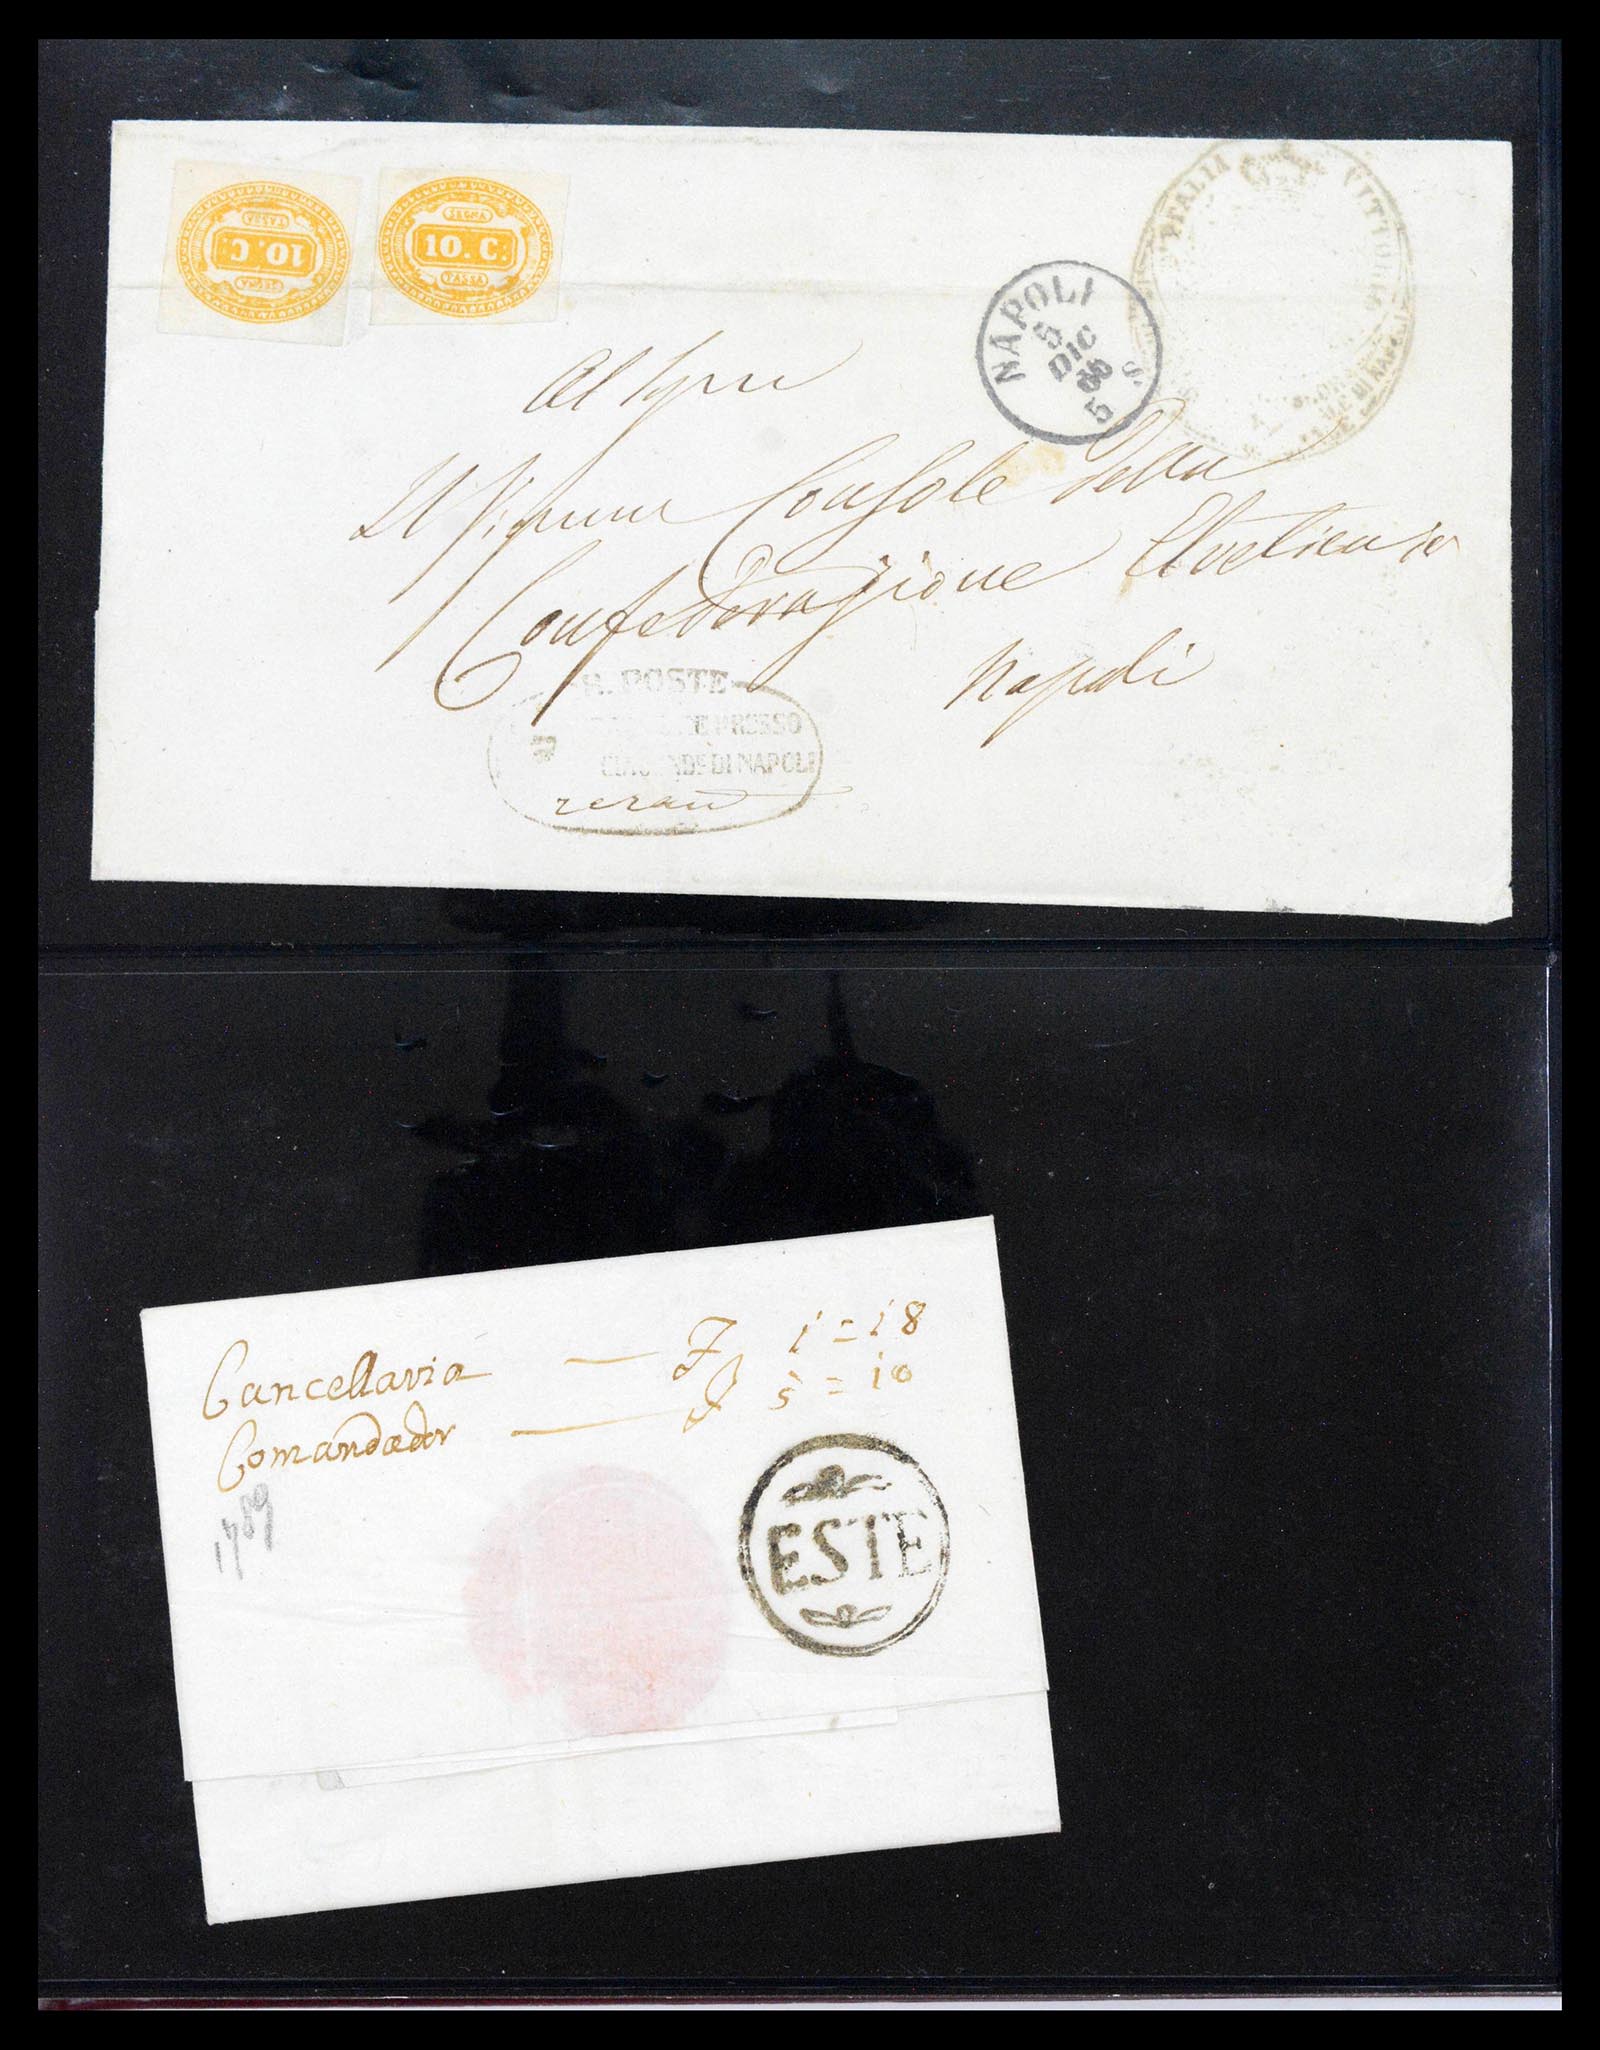 SEGNA
10. C.
TASSA
SEGNA
10. C.
TASSA
D'ITALIA VITTORIO
DI NAPOLI
NAPOLI
5
DIC
66
5 S
Al Sgnr
Il Signor Console della
Confederazione Elvetica in
Napoli
R. POSTE
PRESSO
DI NAPOLI
Cancellaria — F 1=18
Comandador — F 5=10
1789
ESTE